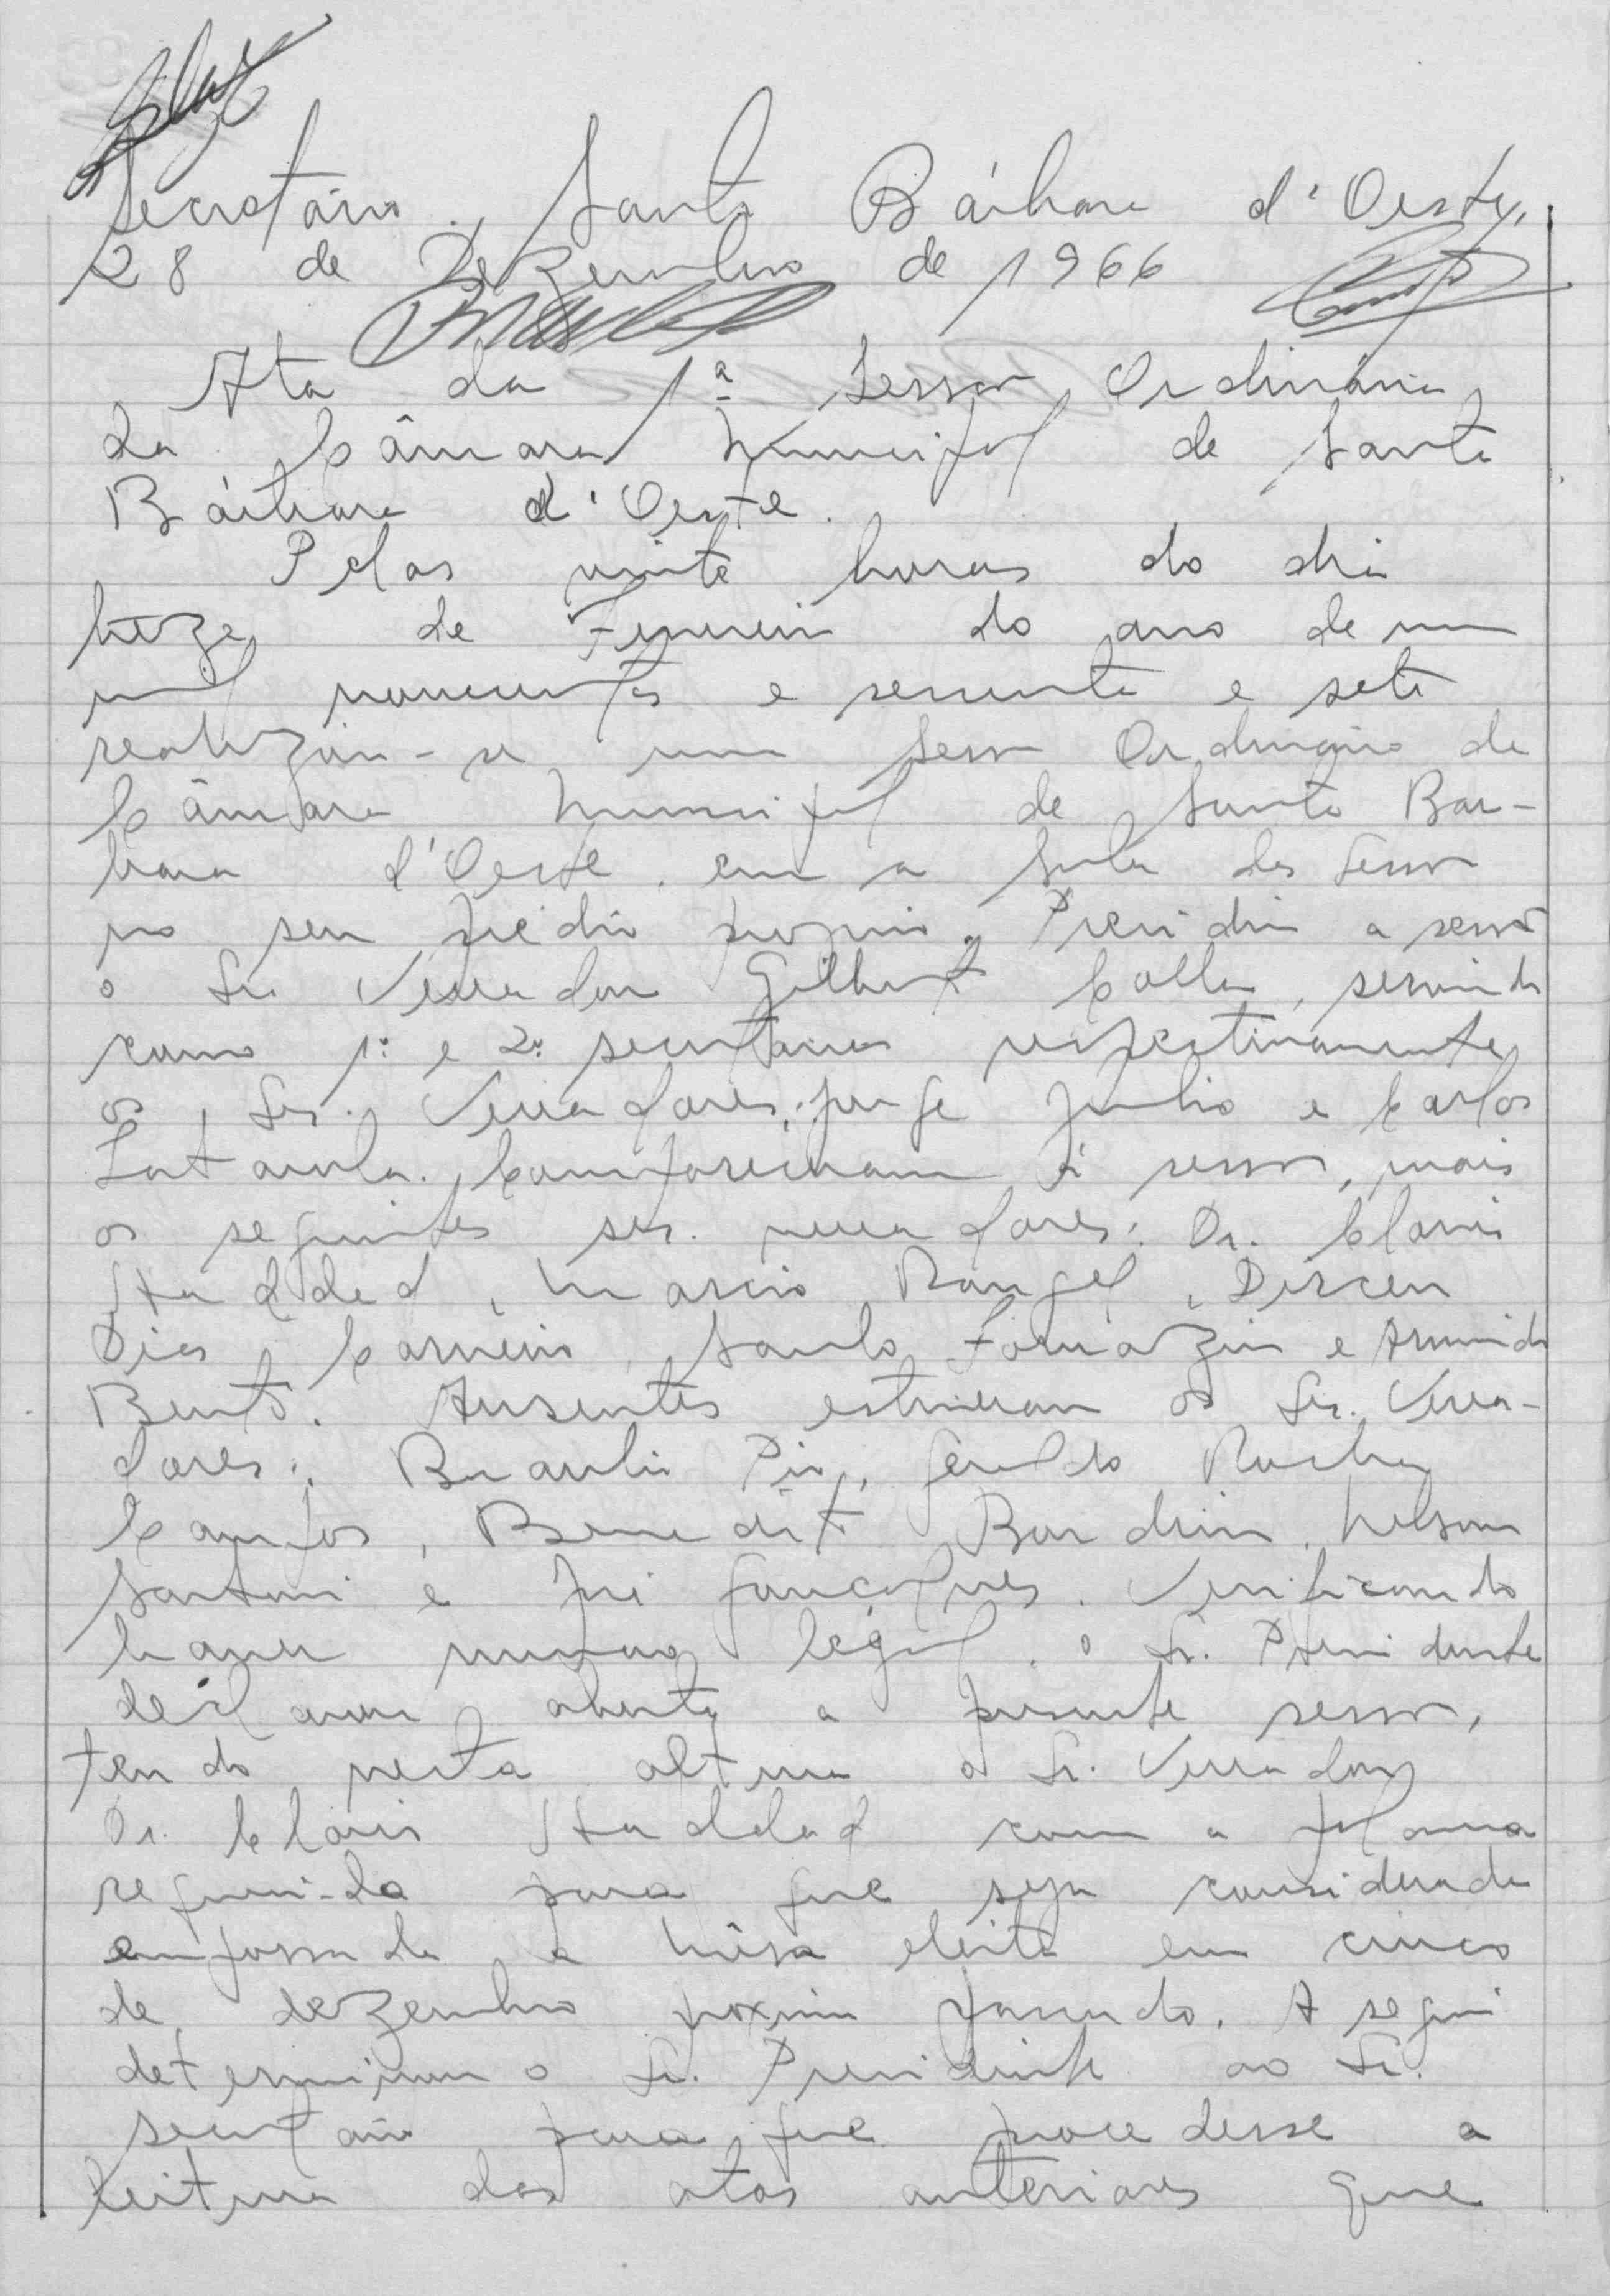 Secretário. Santa Bárbara d'Oeste,
28 de Dezembro de 1966
Ata da 1ª Sessão Ordinária
da Câmara Municipal de Santa
Bárbara d'Oeste.
Pelas vinte horas do dia
treze de Fevereiro do ano de um
mil novecentos e sessenta e sete
realizou-se uma sessão Ordinária da
Câmara Municipal de Santa Bár-
bara d'Oeste, em a sala das Sessão
no seu prédio próprio. Presidiu a sessão
o Sr. Vereador Gilberto Calla, servindo
como 1º e 2º secretários respectivamente
os Srs. Vereadores: Jorge Julio e Carlos
Compareceram à sessão, mais
os seguintes srs. vereadores: Dr. Clovis
Haddad, Marcio Rangel, Dirceu
Dias Carneiro, Santo Fornazin e Armindo
Bento. Ausentes estiveram os Srs. Verea-
dores: Braulio Pio, Geraldo Rocha
Campos, Benedito Bardini, Nelson
Sartori e Gonçalves. Verificando
haver numero légal, o Sr. Presidente
declarou aberta a presente sessão,
tendo nesta altura o Sr. Vereador
Dr. Clovis Haddad com a palavra
requerido para que seja considerada
empossada a Mêsa eleita em cinco
de dezembro proximo passado. A seguir
determinou o Sr. Presidente ao Sr.
secretário para que procedesse a
leitura das atas anteriores que